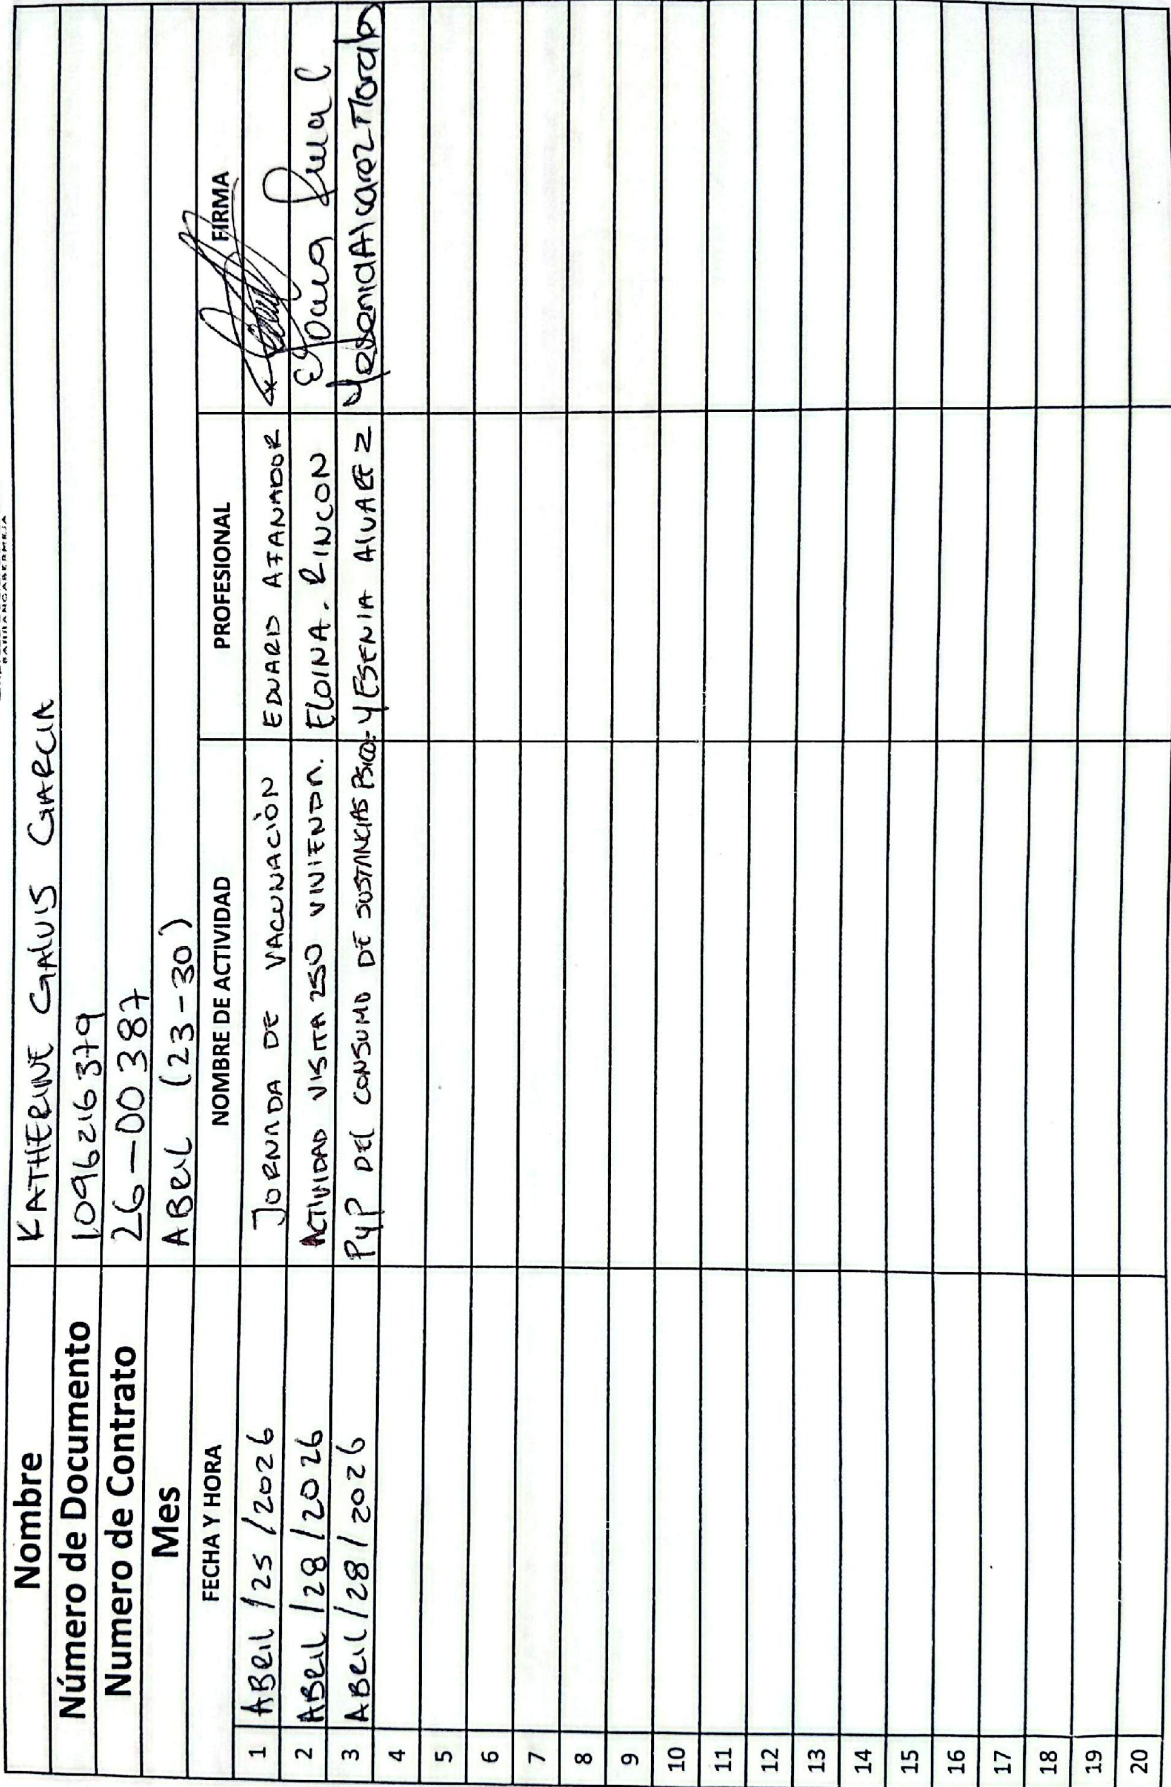 Nombre KATHERINE GALVIS GARCIA
Número de Documento 1096216379
Numero de Contrato 26-00387
Mes ABRIL (23-30)
FECHA Y HORA NOMBRE DE ACTIVIDAD PROFESIONAL FIRMA
1 ABRIL/25/2026 JORNADA DE VACUNACIÓN EDUARD AFANADOR
2 ABRIL/28/2026 ACTIVIDAD VISITA 250 VIVIENDA. ELOINA. RINCON
3 ABRIL/28/2026 PYP DEL CONSUMO DE SUSTANCIAS PSICO. YESENIA ALVAREZ Yesenia Alvarez Morales
4
5
6
7
8
9
10
11
12
13
14
15
16
17
18
19
20